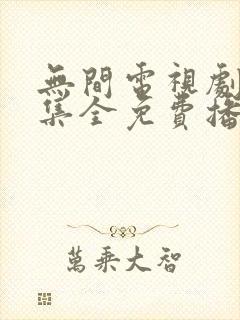 無間電視劇
集全免費播
萬乘大智